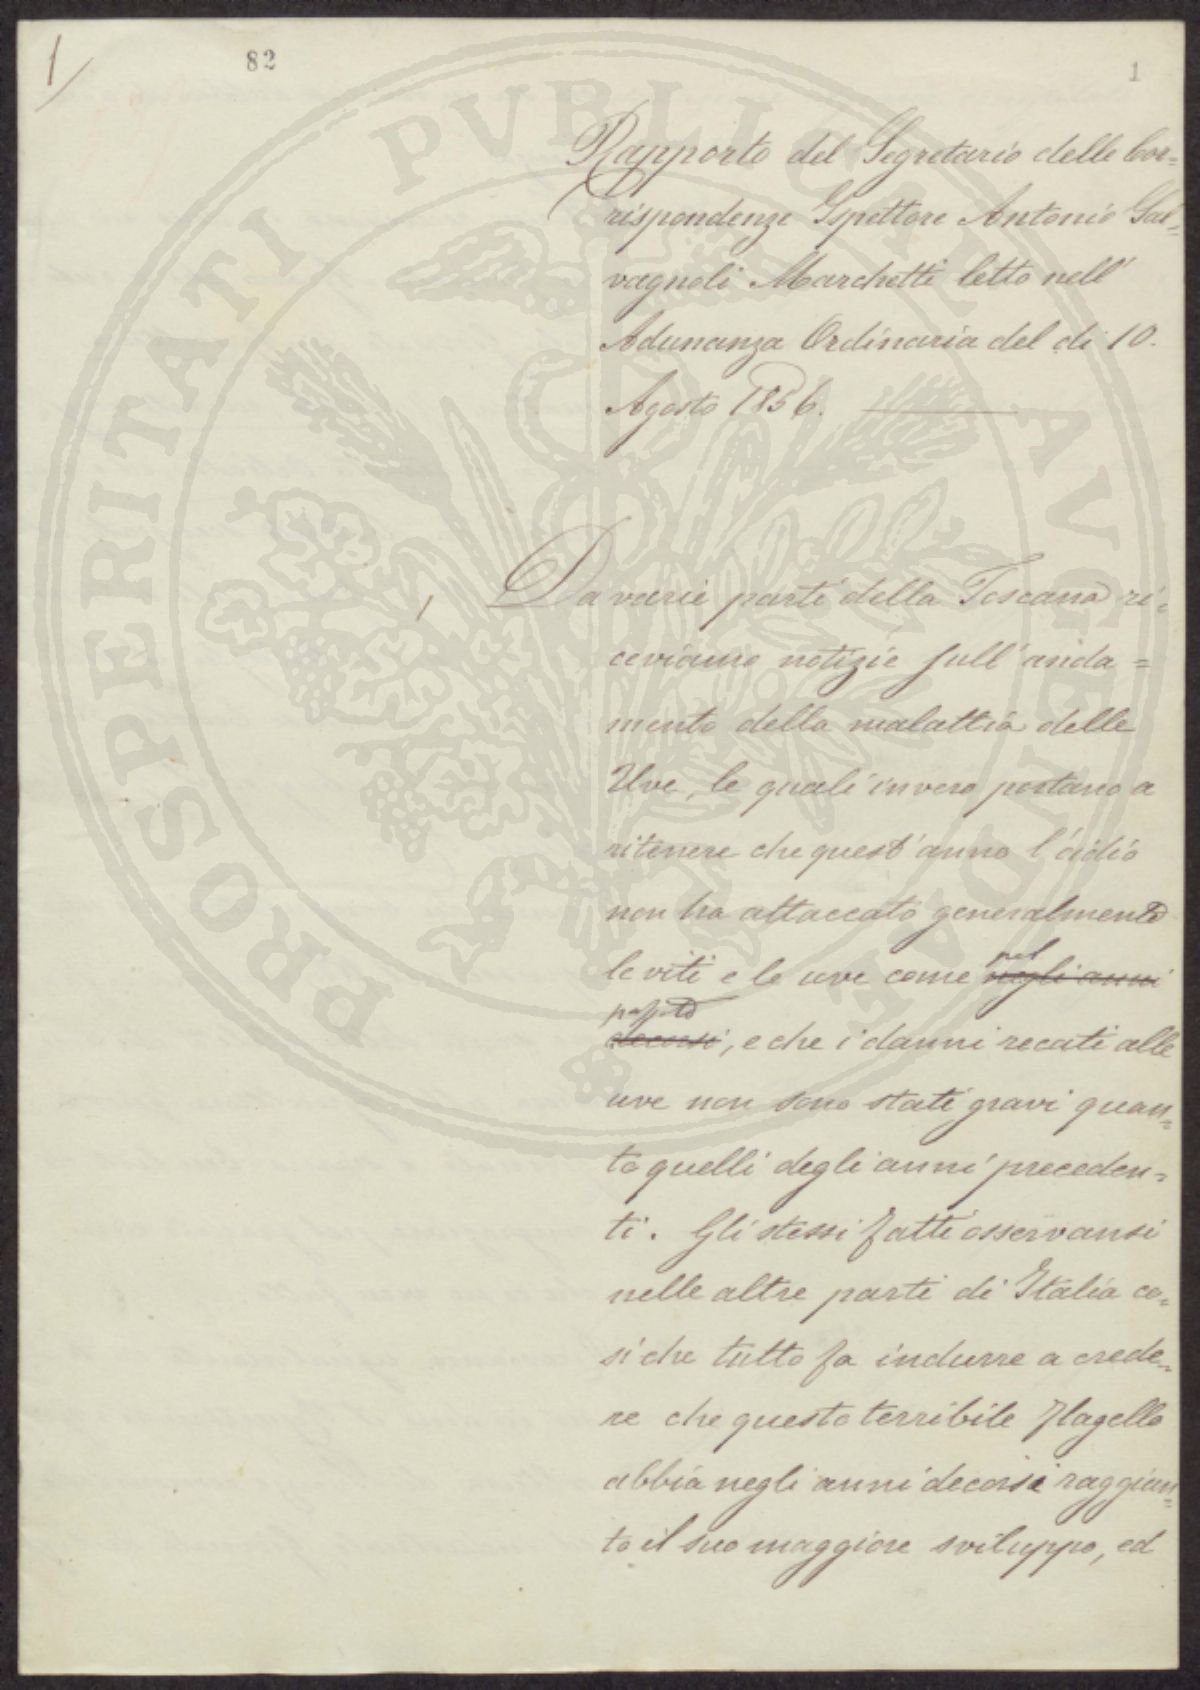 1/
82
1
Rapporto del Segretario delle Cor=
rispondenze Ispettore Antonio Sal=
vagnoli Marchetti letto nell'
Adunanza Ordinaria del dì 10.
Agosto 1856.
/ Da varie parti della Toscana ri=
ceviamo notizie sull'anda=
mento della malattia delle
Uve, le quali invero portano a
ritenere che quest'anno l'oidio
non ha attaccato generalmente
le viti e le uve come nel negli anni
passato decorsi, e che i danni recati alle
uve non sono stati gravi quan=
to quelli degli anni preceden=
ti. Gli stessi fatti osservansi
nelle altre parti di Italia co=
sì che tutto fa indurre a crede=
re che questo terribile flagello
abbia negli anni decorsi raggiun=
to il suo maggiore sviluppo, ed
PROSPERITATI PVBLICAE AVGENDAE